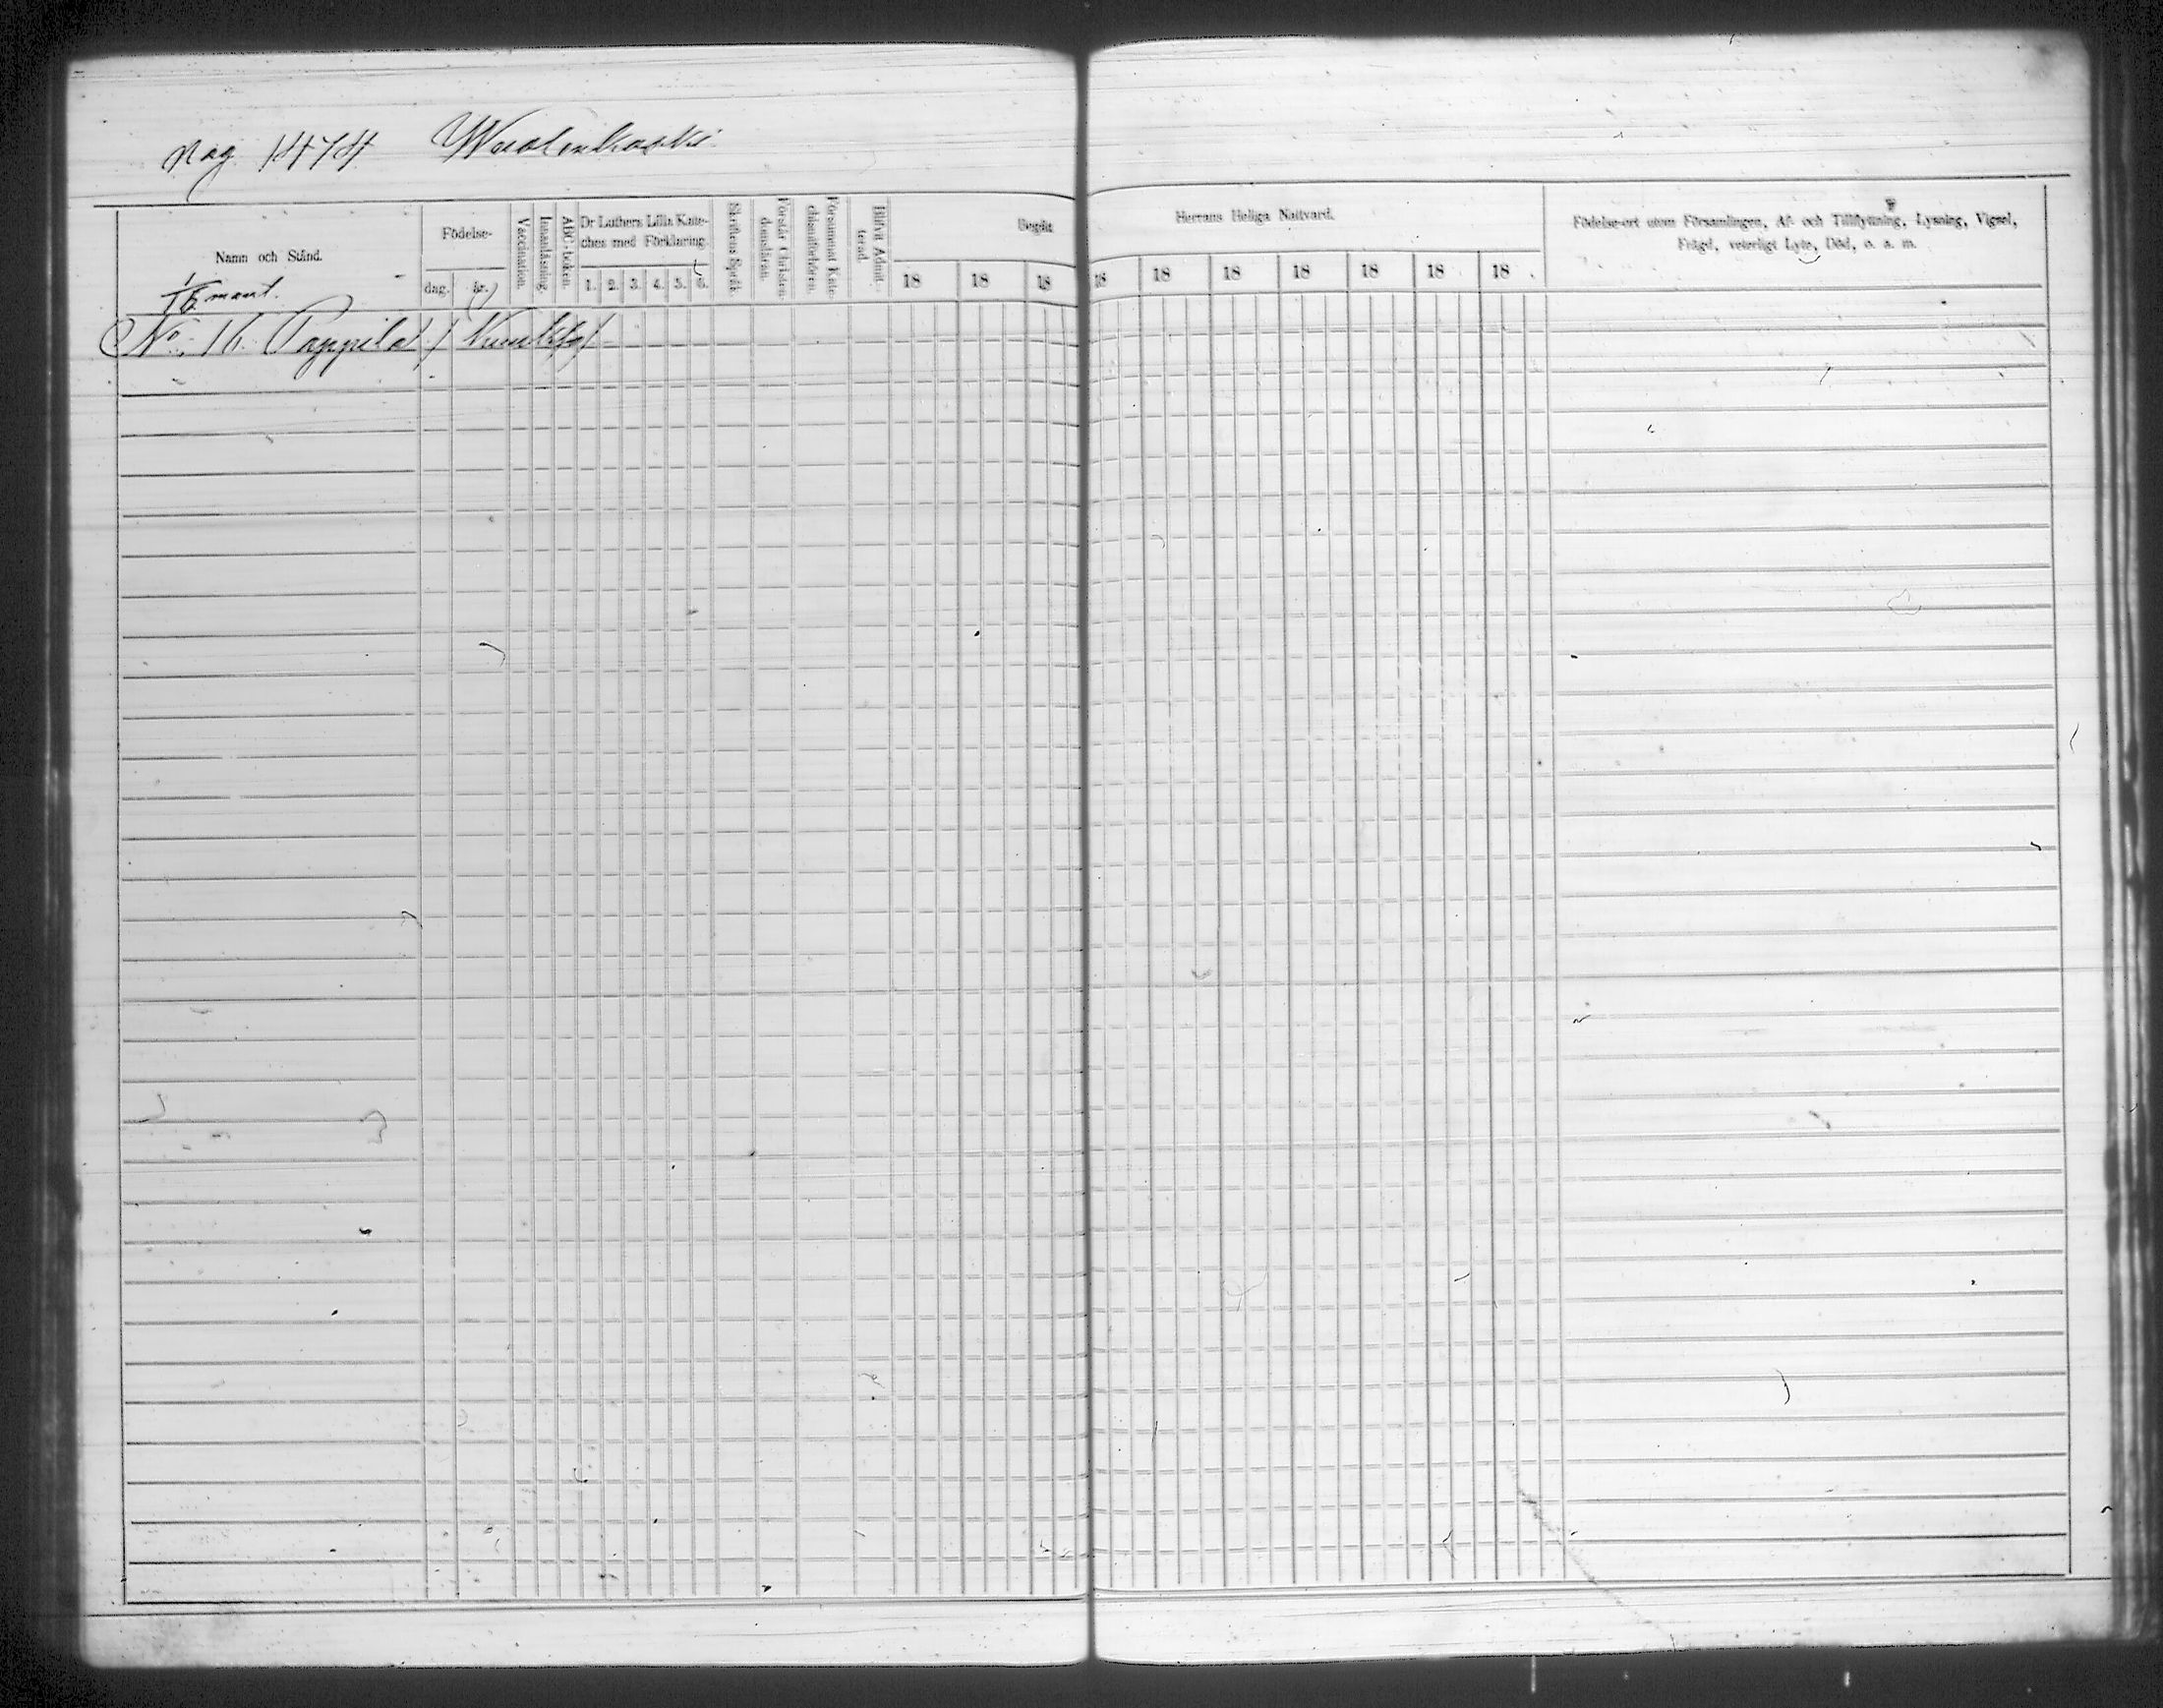 pag. 1474 Wuolenkoski
Namn och Stånd.
Födelse-
dag. år.
Vaccination.
Innanläsning.
ABC-boken.
Dr Luthers Lilla Kate-
ches med Förklaring.
1. 2. 3. 4. 5. 6.
Skriftens Språk.
Förstår Christen-
domsläran.
Försummat Kate-
chismiförhören.
Blifvit Admit-
terad.
Begått
Herrans Heliga Nattvard.
18 18 18 18 18 18 18 18 18 18
Födelse-ort utom Församlingen, Af- och Tillflyttning, Lysning, Vigsel,
Frägd, veterligt Lyte, Död, o. s. m.
mant.
No. 16. Pappila